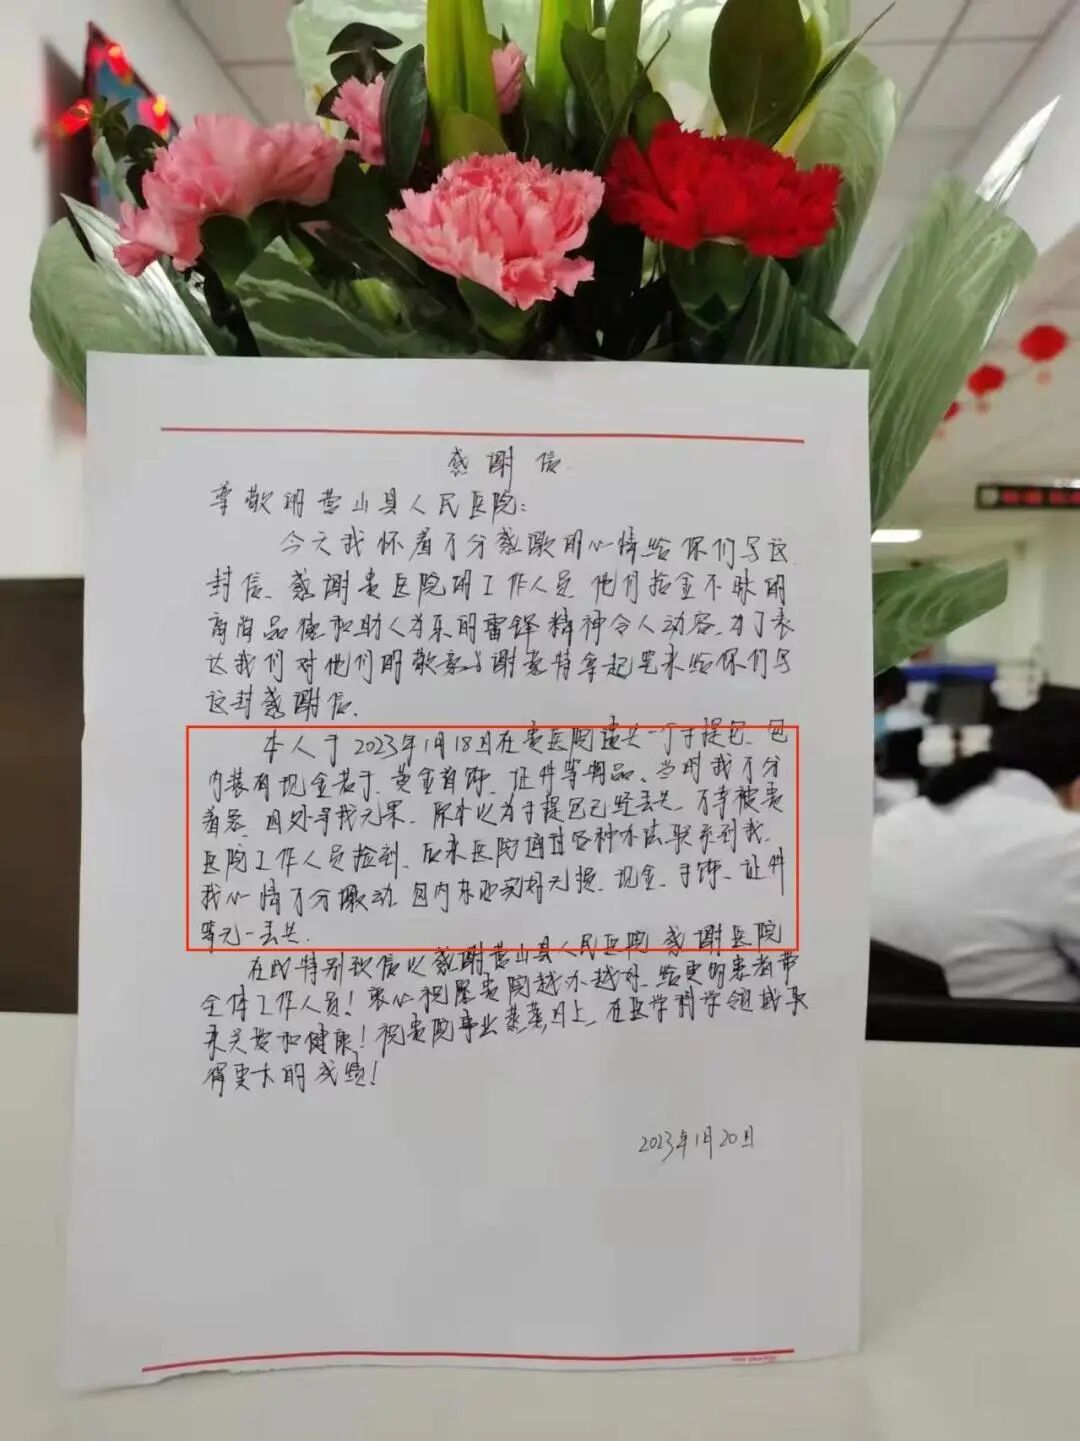 感谢信
尊敬的营山县人民医院:
今天我怀着十分感激的心情给你们写这
封信、感谢贵医院的工作人员 他们拾金不昧的
高尚品德和助人为乐的雷锋精神令人动容、为了表
达我们对他们的敬意与谢意特拿起笔来给你们写
这封感谢信、
本人于2023年1月18日在贵医院遗失一个手提包、包
内装有现金若干、黄金首饰、证件等物品、当时我十分
着急、四处寻找无果、原本以为手提包已经丢失、不幸被贵
医院工作人员捡到、后来医院通过各种办法联系到我、
我心情十分激动 包内东西完好无损、现金、手饰、证件
等无一丢失、
在此特别致信以感谢营山县人民医院 感谢医院
全体工作人员!衷心祝愿贵院越办越好、给更的患者带
来关爱和健康!祝贵院事业蒸蒸日上、在医学科学领域取
得更大的成绩!
2023年1月20日